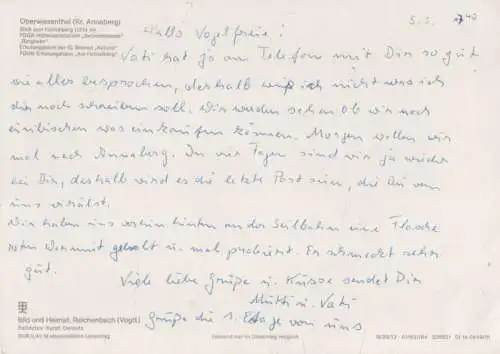 Oberwiesenthal (Kr. Annaberg)
Blick zum Fichtelberg (1214 m)
FDGB-Erholungsheim "Am Fichtelberg"
5.3.
Hallo Vogelfreie!
Vati hat ja am Telefon mit Dir so gut
wie alles besprochen, deshalb weiß ich nicht was ich
dir noch schreiben soll. Wir werden sehen ob wir noch
einbischen was einkaufen können. Morgen wollen wir
mal nach Annaberg. In vier Tagen sind wir ja wieder
bei Dir, deshalb wird es die letzte Post sein, die Du von
uns erhälst.
Wir haben uns von hinten an der Seilbahn eine Flasche
roten Wermut geholt u. mal probiert. Er schmeckt sehr
gut.
Viele liebe Grüße u. Küsse sendet Dir
Mutti u. Vati
Grüße die 1. Etage von uns
Bild und Heimat, Reichenbach (Vogtl.)